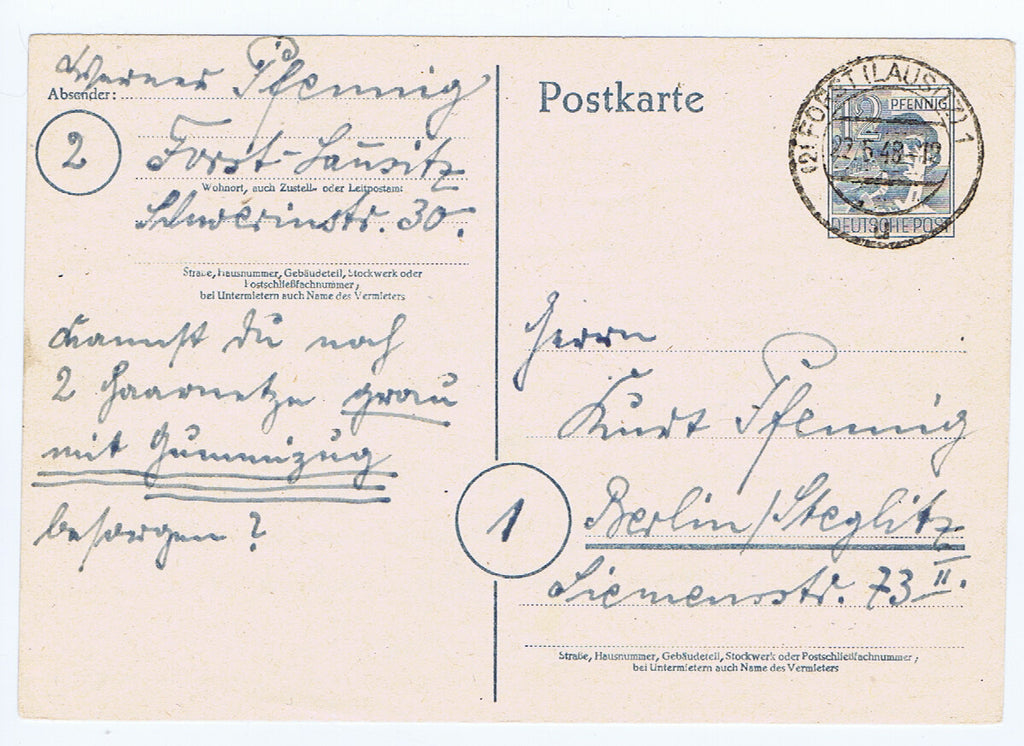 Werner Pfennig
Absender:
2
Forst-Lausitz
Wohnort, auch Zustell- oder Leitpostamt
Schwerinstr. 30.
Straße, Hausnummer, Gebäudeteil, Stockwerk oder
Postschließfachnummer;
bei Untermietern auch Name des Vermieters
Kannst Du noch
2 Haarnetze grau
mit Gummizug
besorgen?
Postkarte
(2) FORST (LAUSITZ) 1
22.6.48
12 PFENNIG
DEUTSCHE POST
Herrn
Kurt Pfennig
1
Berlin/Steglitz
Siemensstr. 73 II.
Straße, Hausnummer, Gebäudeteil, Stockwerk oder Postschließfachnummer;
bei Untermietern auch Name des Vermieters